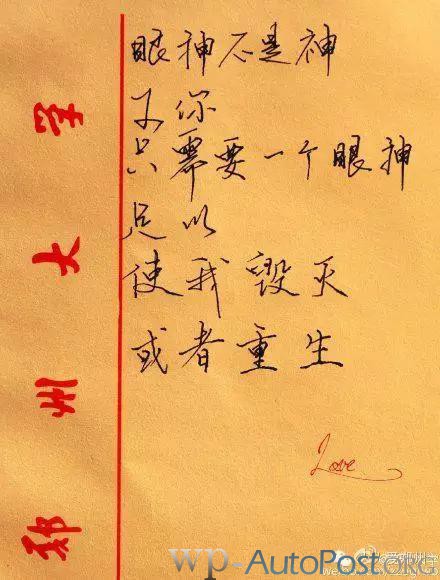 眼神不是神
又你
只需要一个眼神
足以
使我毁灭
或者重生
Love
郑州大学
wp-AutoPost.ORG